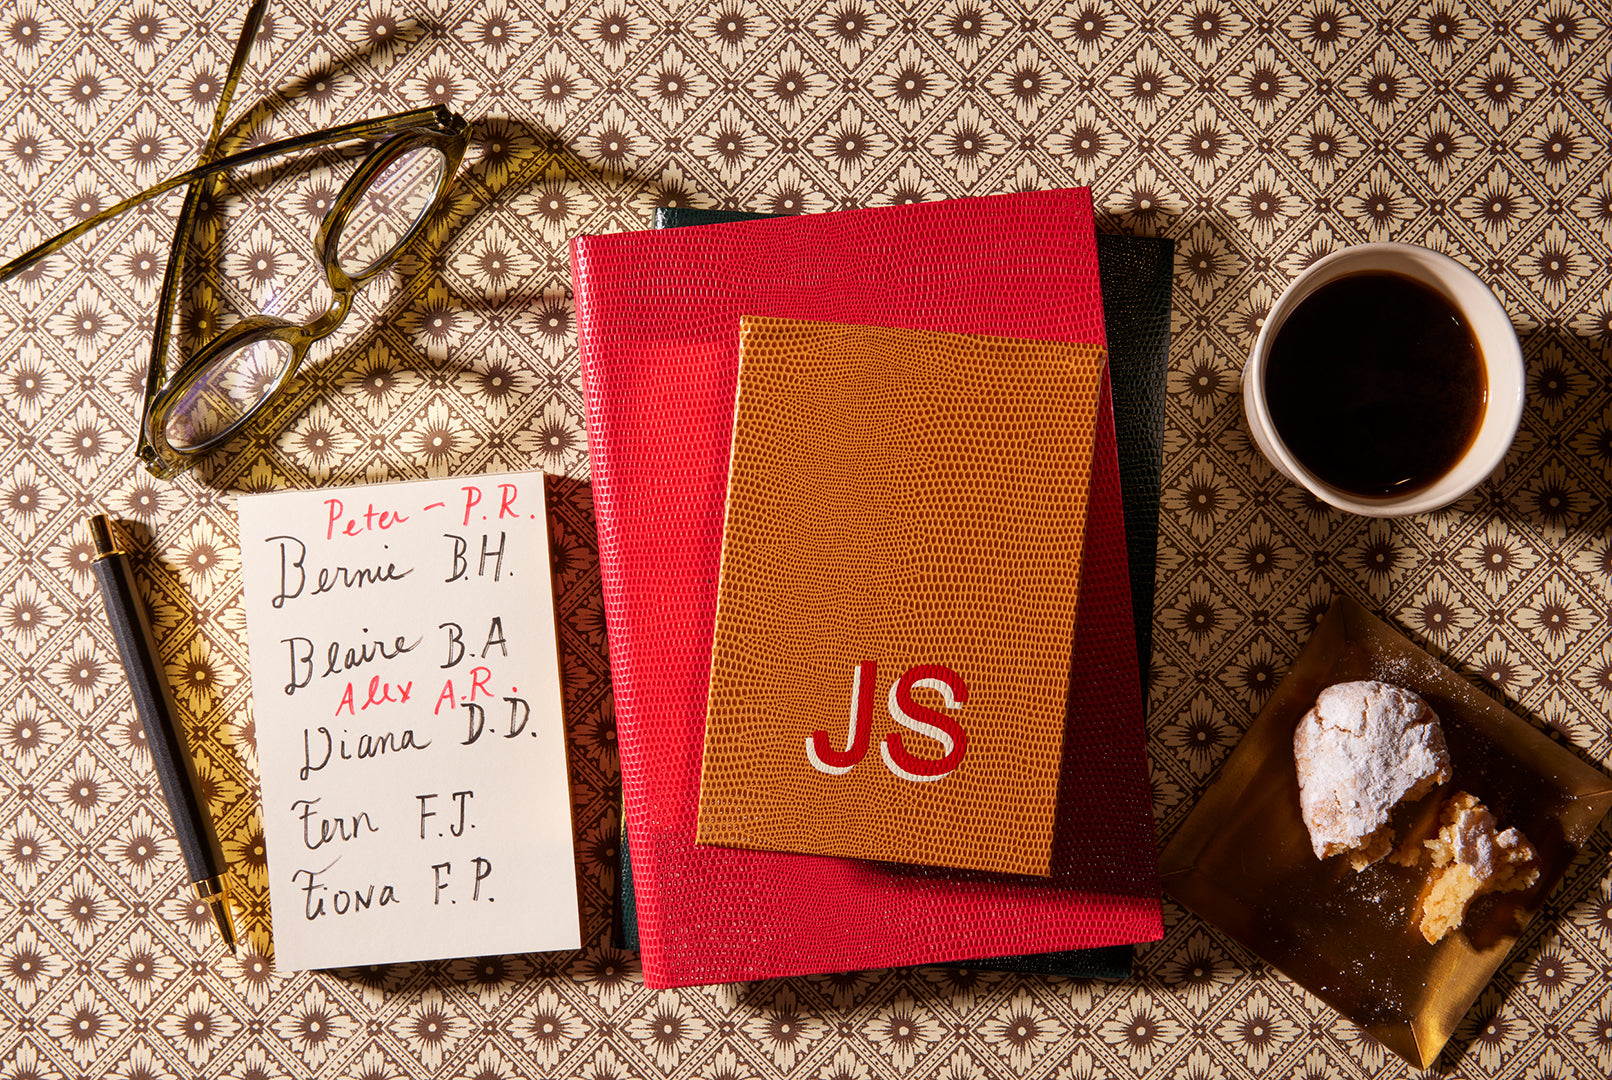 Peter - P.R.
Bernie B.H.
Blaire B.A
Alex A.R.
Diana D.D.
Fern F.J.
Fiona F.P.
JS